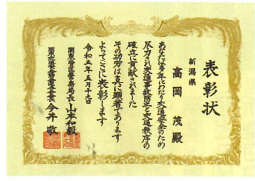 表彰状
新潟県
高岡 茂殿
あなたは多年にわたり交通安全のため
尽力され交通事故防止と交通秩序の
確立に貢献されました
その功労は真に顕著であります
よってここに表彰します
令和五年五月十六日
山本和毅
今井 敬